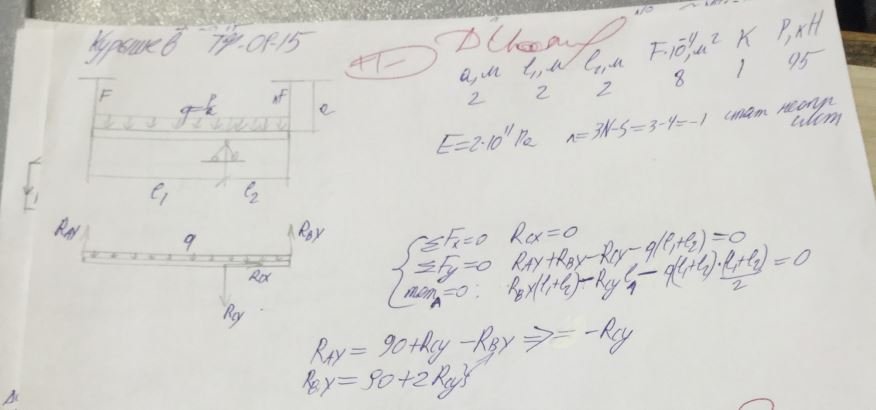 Курышев ТФ-01-15
a, м l₁, м l₂, м F·10⁻⁴, м² K P, кН
2 2 2 8 1 95
E=2·10¹¹ Па n=3N-S=3-4=-1 стат неопр
F кF a
l₁ l₂
RAY RBY
q
RCX
RCY
ΣFx=0 RCX=0
ΣFy=0 RAY+RBY-RCY-q(l₁+l₂)=0
momA=0: RBY(l₁+l₂)-RCY l₁-q(l₁+l₂)·(l₁+l₂)/2=0
RAY=90+RCY-RBY => = -RCY
RBY=90+2RCY